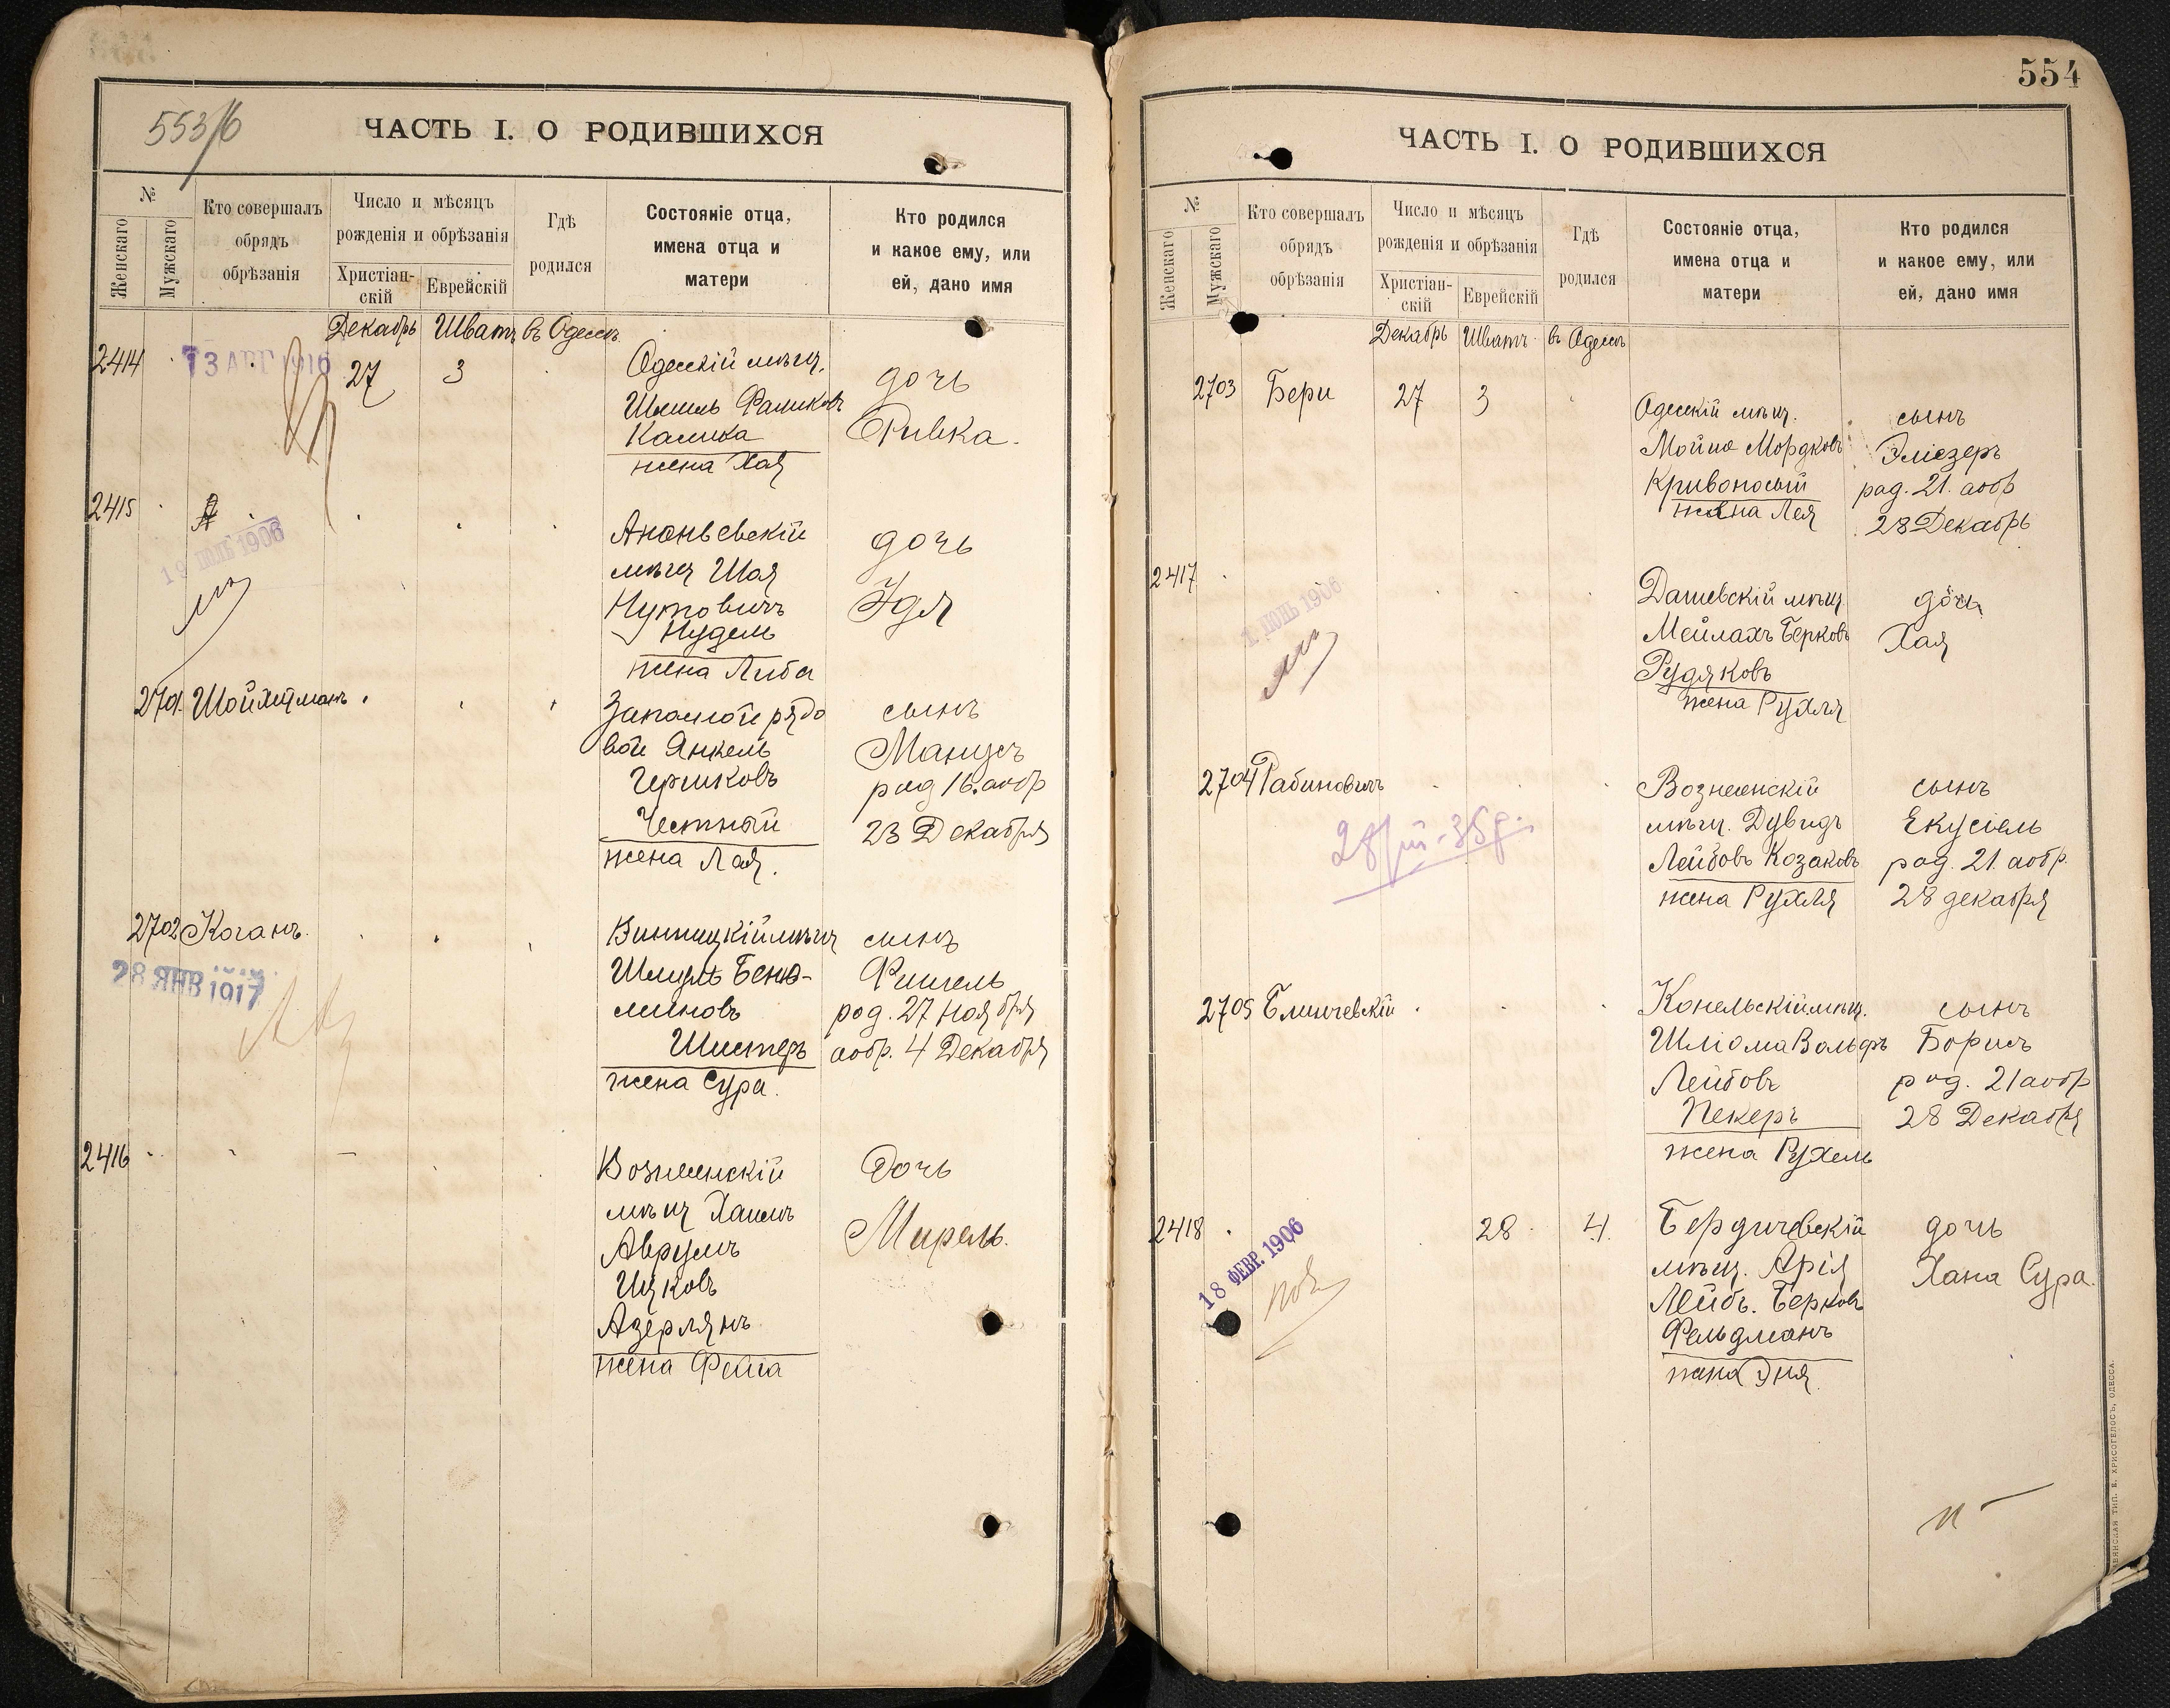 553/б
ЧАСТЬ I. О РОДИВШИХСЯ
№
Женскаго
Мужскаго
Кто совершалъ
обрядъ
обрѣзанія
Число и мѣсяцъ
рожденія и обрѣзанія
Христіан-
скій
Еврейскій
Гдѣ
родился
Состояніе отца,
имена отца и
матери
Кто родился
и какое ему, или
ей, дано имя
Декабрь Шватъ въ Одессѣ
2414 27 3 Одесскій мѣщ. дочь
Фаликовъ Ривка.
Калика
жена Хая
2415 Ананьевскій дочь
19 ІЮЛЬ 1906
мѣщ Шая Удя
Нутовичъ
Нудель
жена Либа
2701. Шойхетманъ Запасной рядо сынъ
вой Янкель Манусъ
Гершковъ род 16. аобр
Честный 23 Декабря
жена Лая.
2702 Коганъ Винницкій мѣщ сынъ
28 ЯНВ 1917
Шмуль Беня- Фишель
миновъ род. 27 Ноября
Шистеръ аобр. 4 Декабря
жена Сура.
2416 Вознесенскій Дочь
мѣщ Хаимъ Мирель.
Аврумъ
Ицковъ
Азерлянъ
жена Фейга
554
ЧАСТЬ I. О РОДИВШИХСЯ
№
Женскаго
Мужскаго
Кто совершалъ
обрядъ
обрѣзанія
Число и мѣсяцъ
рожденія и обрѣзанія
Христіан-
скій
Еврейскій
Гдѣ
родился
Состояніе отца,
имена отца и
матери
Кто родился
и какое ему, или
ей, дано имя
Декабрь Шватъ въ Одессѣ
2703 Бери 27 3 Одесскій мѣщ. сынъ
Мойше Мордковъ Эліезеръ
Кривоносый род. 21. аобр
жена Лея 28 Декабрь
2417 Дашевскій мѣщ дочь
Мейлахъ Берковъ Хая
Рудяковъ
жена Рухля
2704 Рабиновичъ Вознесенскій сынъ
мѣщ. Дувидъ Екусіель
Лейбовъ Козаковъ род. 21. аобр.
жена Рухля 28 декабря
2705 Конельскій мѣщ. сынъ
Шліома Вольфъ Борисъ
Лейбовъ род. 21 аобр
Пекеръ 28 Декабря
жена Рухель
2418 28 4. Бердичевскій дочь
18 ФЕВР. 1906
мѣщ. Арія Хана Сура.
Лейбъ. Берковъ
Фельдманъ
жена Эня
ТИП. Е. ХРИСОГЕЛОСЪ, ОДЕССА.